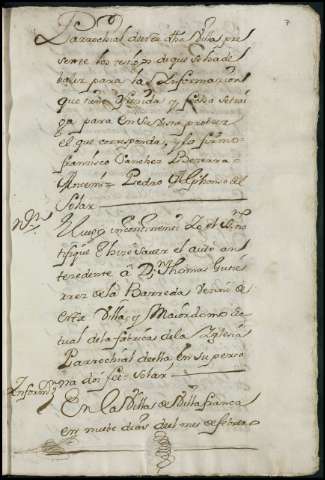 7
Parrochial desta dha Villa, pre
sente los testigos de que se ha de
baler para la Informacion
que tiene ofrecida y fecha se trai
ga para en su vista probeer
el que corresponda, y lo firmo
Francisco Sanchez
Antemi Pedro Alphonso del
Solar
Notn.
Luego incontinenti Yo el ssno
tifique e hice saver el auto an
tecedente a Dn Thomas Gutie
rrez de la Barreda vecino de
esta Villa, y Maiordomo ac
tual de la fabrica de la Yglesia
Parrochial de ella, en su perso
na doi fee. Solar
Informn
En la Villa de Villafranca
en nuebe dias del mes de febrero